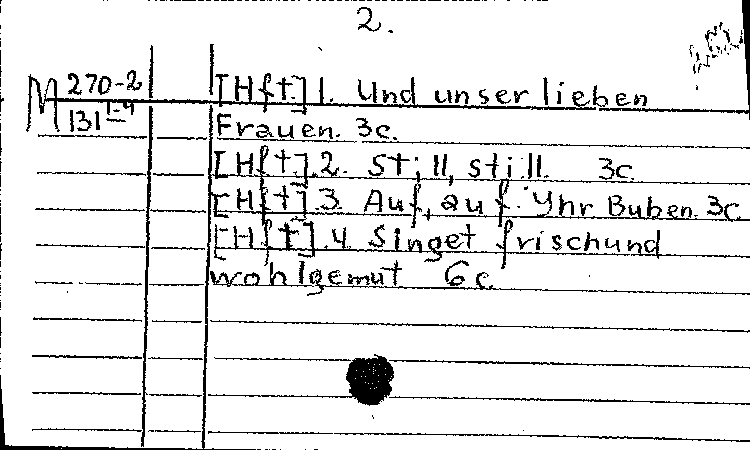 2.
M 270-2
131 1-4
[Hft] 1. Und unser lieben
Frauen. 3c.
[Hft].2. Still, still. 3c.
[Hft].3. Auf, auf. Yhr Buben. 3c
[Hft].4. Singet frisch und
wohlgemut 6c.